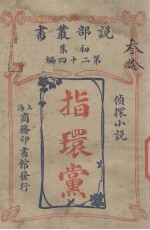 說部叢書
初集
第二十四編
偵探小說
指環黨
上海商務印書館發行